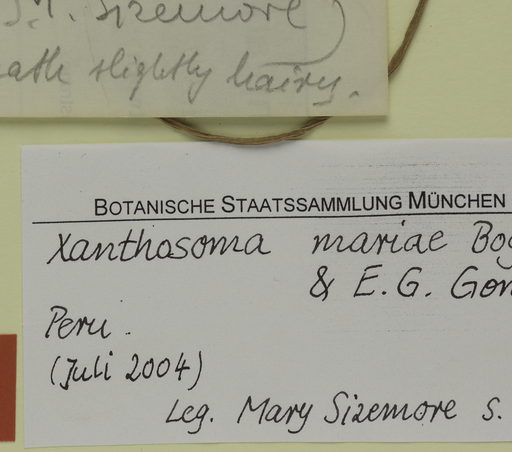 Sizemore)
slightly hairy.
BOTANISCHE STAATSSAMMLUNG MÜNCHEN
Xanthosoma mariae Bog
& E.G. Gon
Peru.
(Juli 2004)
Leg. Mary Sizemore s.